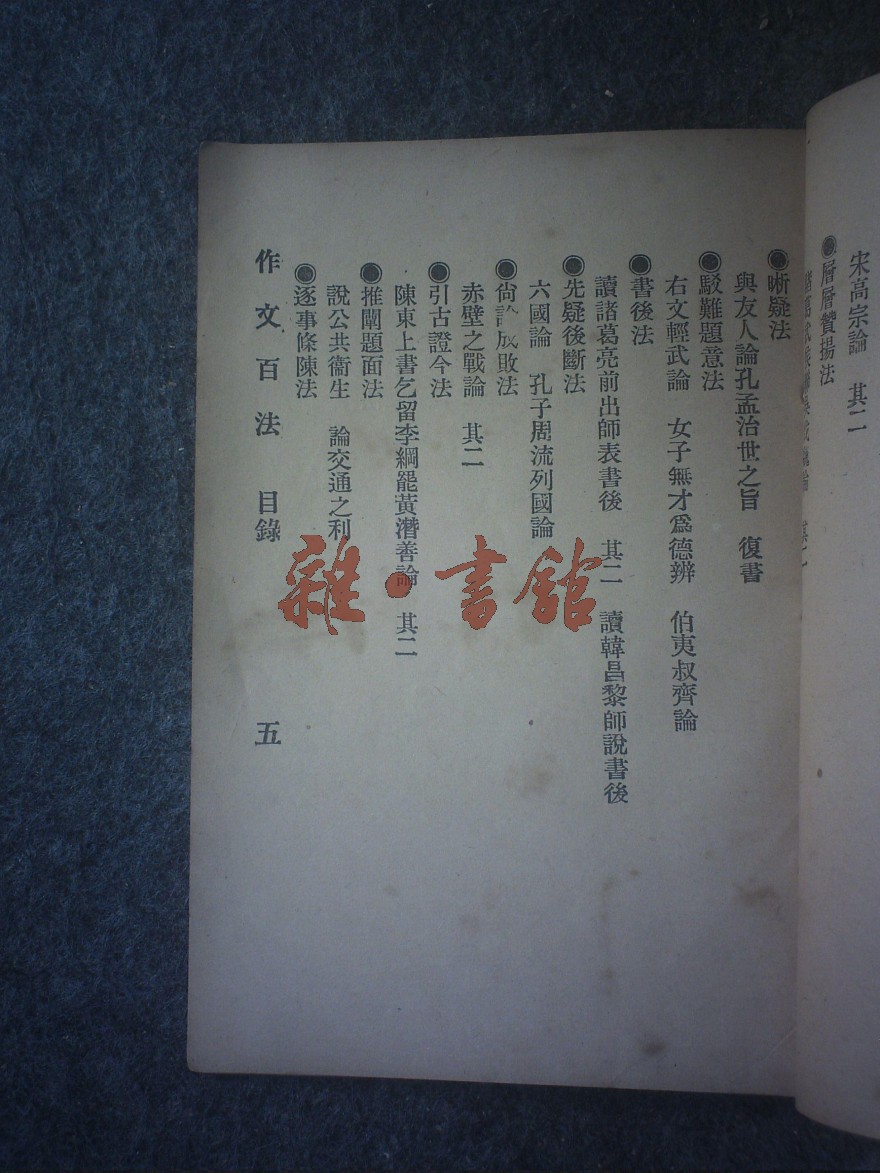 宋高宗論　其二
●層層贊揚法
其二
●晰疑法
與友人論孔孟治世之旨　復書
●駁難題意法
右文輕武論　女子無才爲德辨　伯夷叔齊論
●書後法
讀諸葛亮前出師表書後　其二　讀韓昌黎師說書後
●先疑後斷法
六國論　孔子周流列國論
●尙論成敗法
赤壁之戰論　其二
●引古證今法
陳東上書乞留李綱罷黃潛善論　其二
●推闡題面法
說公共衞生　論交通之利
●逐事條陳法
作文百法　目錄　五
雜·書館